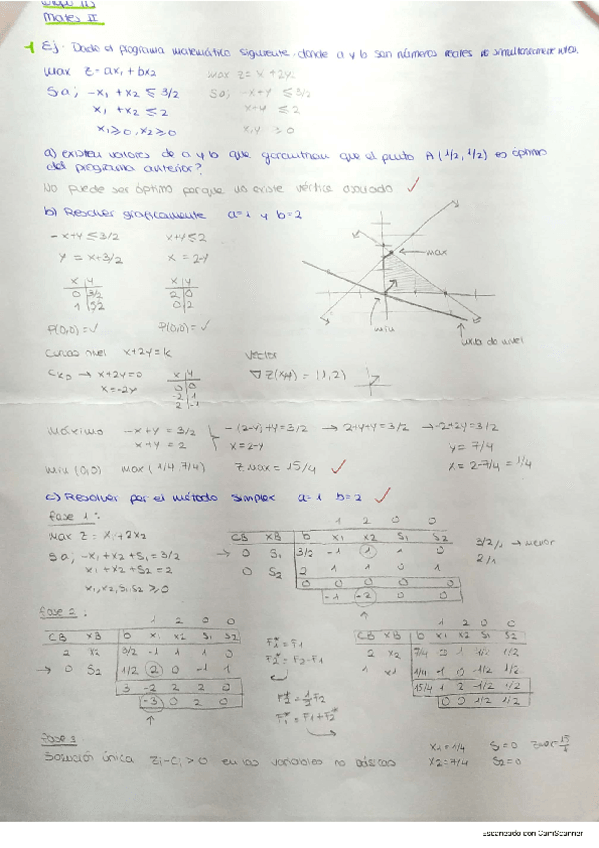 Mates II
1 Ej. Dado el programa matemático siguiente, donde a y b son números reales no simultáneamente nulos.
max z = ax₁ + bx₂    max z = x + 2y
Sa; -x₁ + x₂ ≤ 3/2    Sa; -x + y ≤ 3/2
x₁ + x₂ ≤ 2    x + y ≤ 2
x₁ ≥ 0, x₂ ≥ 0    x, y ≥ 0
a) existen valores de a y b que garantizan que el punto A (1/2, 1/2) es óptimo
del programa anterior?
No puede ser óptimo porque no existe vértice asociado ✓
b) Resolver gráficamente a=1 y b=2
-x+y ≤ 3/2    x+y ≤ 2
y = x+3/2    x = 2-y
max
x y    x y
0 3/2    2 0
1 5/2    0 2
P(0,0) = ✓    P(0,0) = ✓
min
curva de nivel
curvas nivel x+2y = k    vector
→ x+2y=0    x y    ∇z(x,y) = (1,2)
x = -2y    0 0
-2 1
2 -1
Máximo    -x+y = 3/2    -(2-y)+y = 3/2 → -2+y+y = 3/2 → -2+2y = 3/2
x+y = 2    x = 2-y    y = 7/4
min (0,0)    max (1/4, 7/4)    Z max = 15/4 ✓    x = 2-7/4 = 1/4
c) Resolver por el método simplex a=1 b=2 ✓
Fase 1:    1 2 0 0
Max z = x₁ + 2x₂    CB XB b x₁ x₂ S₁ S₂
Sa; -x₁+x₂+S₁ = 3/2    → 0 S₁ 3/2 -1 1 1 0    3/2/1 → menor
x₁+x₂+S₂ = 2    0 S₂ 2 1 1 0 1    2/1
x₁,x₂,S₁,S₂ ≥ 0    0 0 0 0 0
-1 -2 0 0
Fase 2:    1 2 0 0    1 2 0 0
CB XB b x₁ x₂ S₁ S₂    F₁* = F₁    CB XB b x₁ x₂ S₁ S₂
2 x₂ 3/2 -1 1 1 0    F₂* = F₂-F₁    2 x₂ 7/4 0 1 1/2 1/2
→ 0 S₂ 1/2 2 0 -1 1    1 x₁ 1/4 1 0 -1/2 1/2
3 -2 2 2 0    F₂* = 1/2 F₂    15/4 1 2 1/2
-3 0 2 0    F₁* = F₁+F₂*    0 0 1/2
Fase 3
Solución única zⱼ-cⱼ > 0 en las variables no básicas    x₁ = 1/4    S₁ = 0
x₂ = 7/4    S₂ = 0
Escaneado con CamScanner